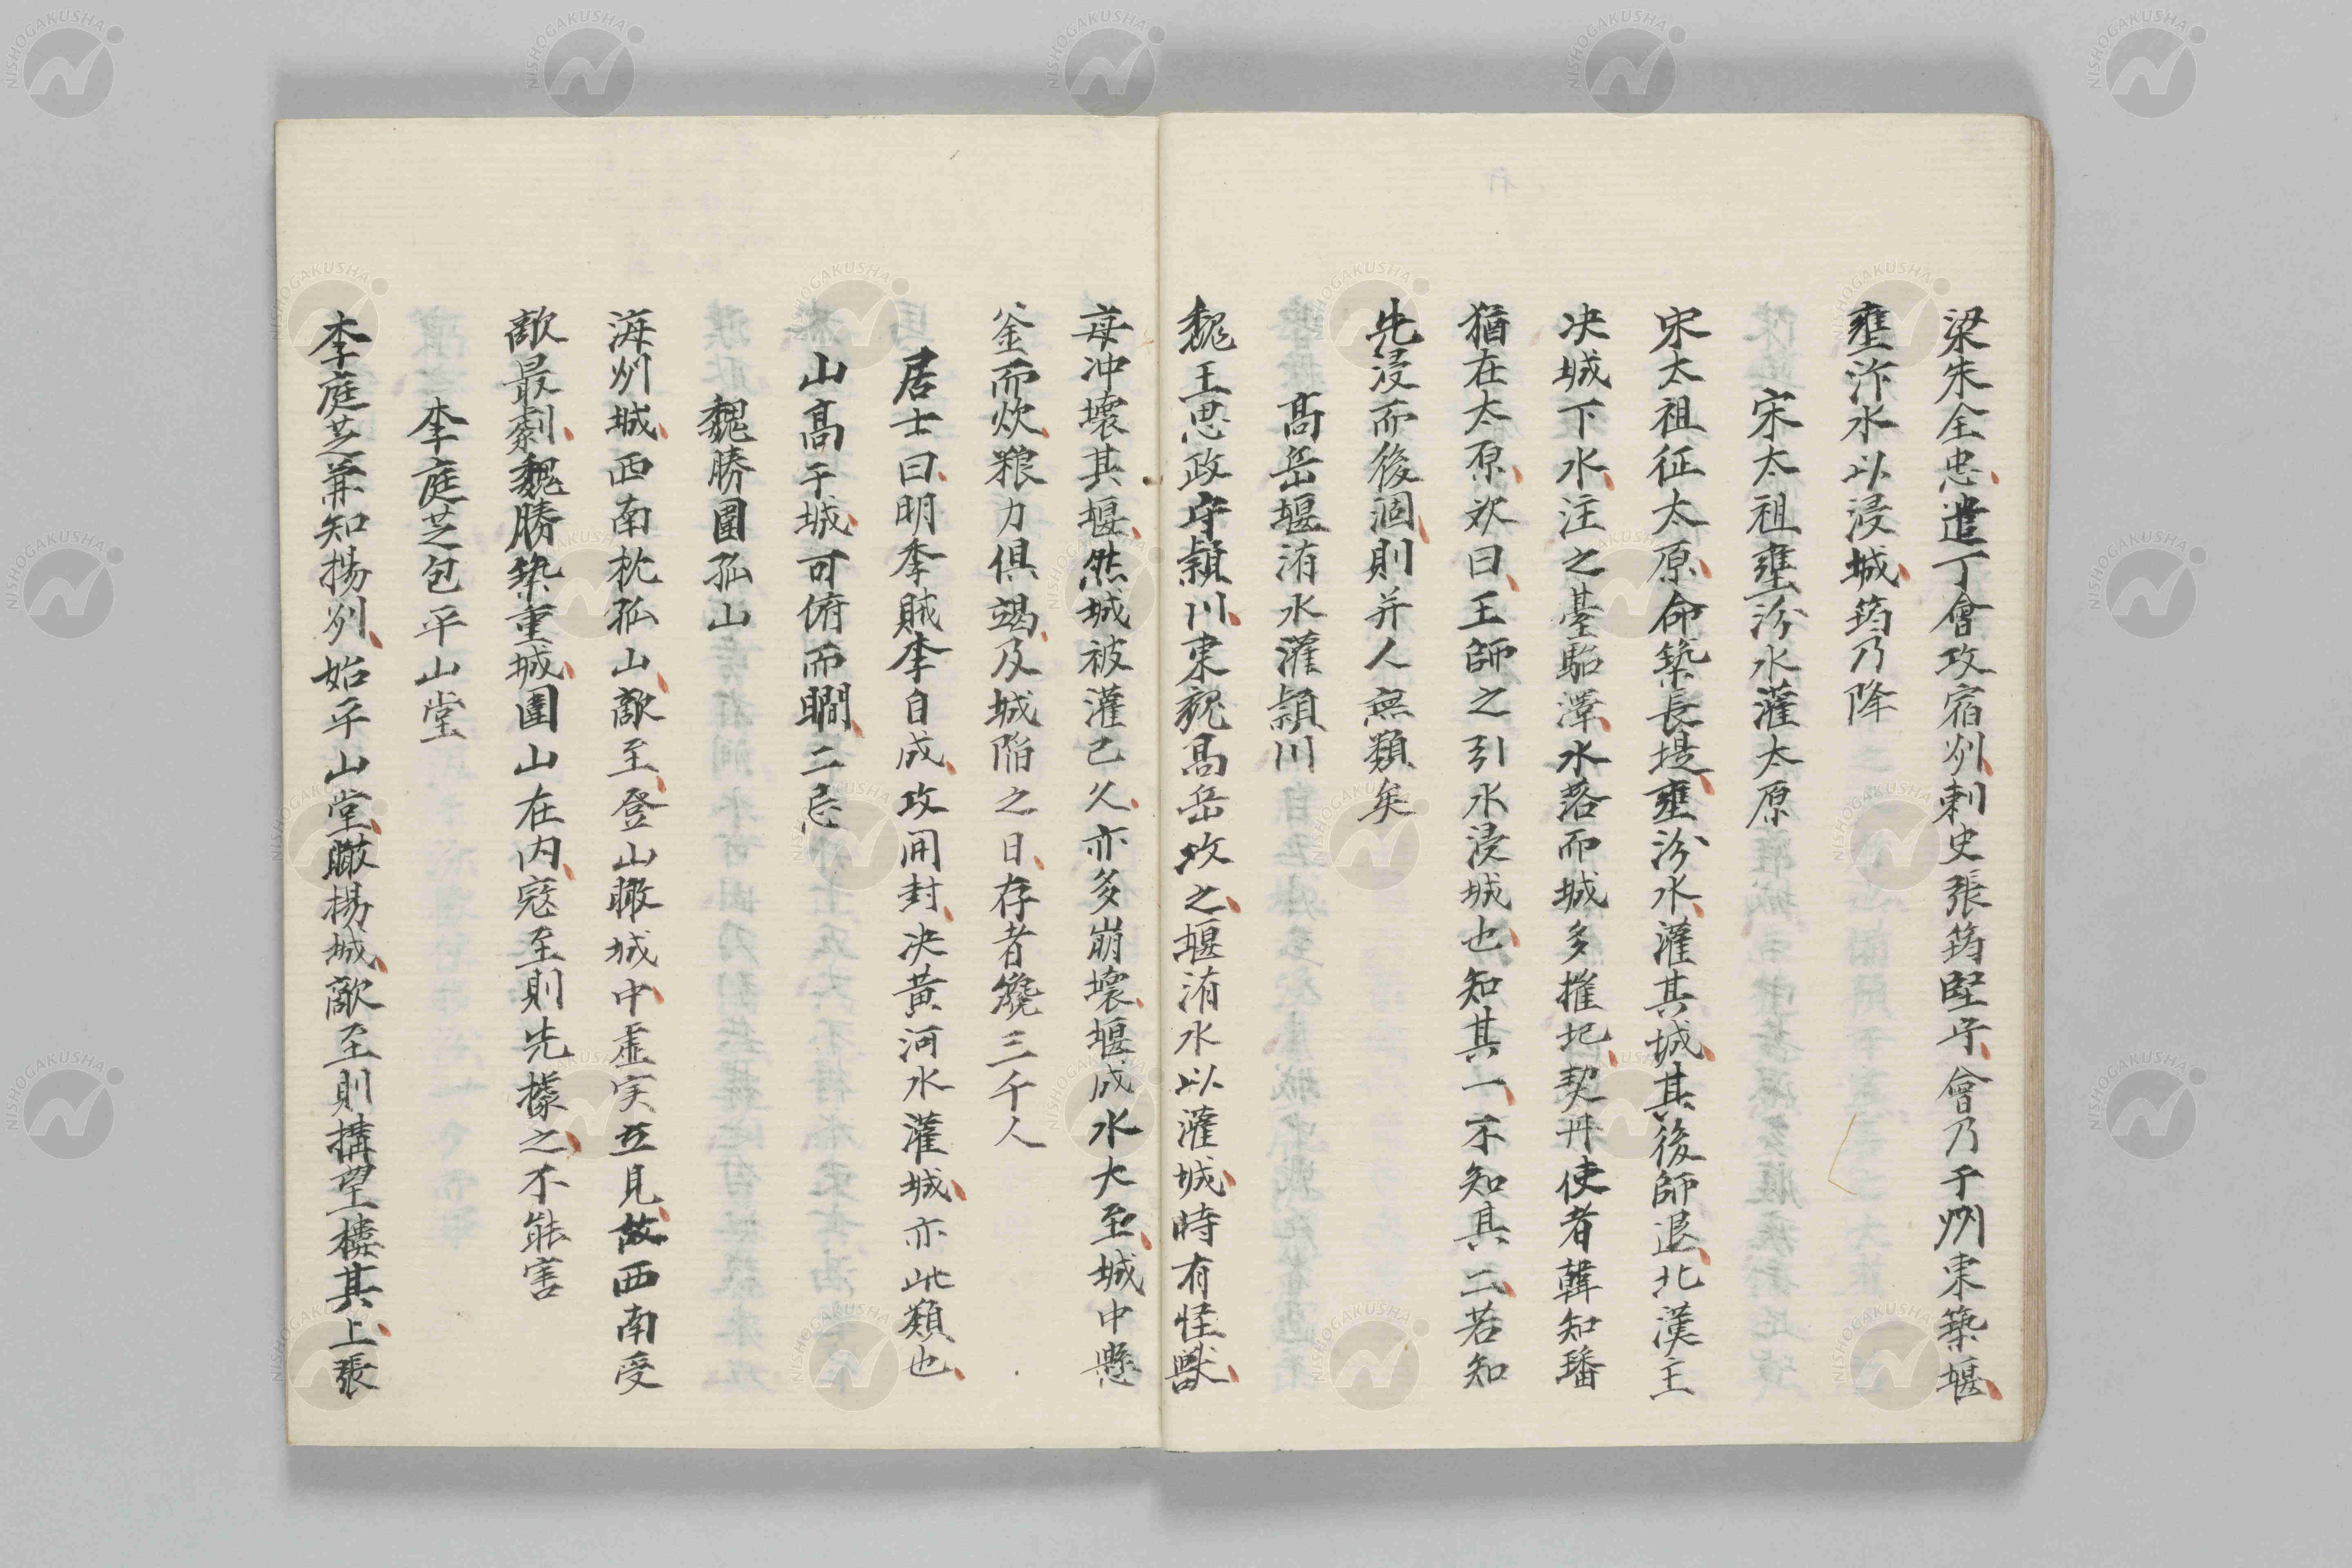 梁朱全忠遣丁會攻宿州刺史張筠堅守會乃于州東築堰
壅汴水以浸城筠乃降
宋太祖壅汾水灌太原
宋太祖征太原命築長堤壅汾水灌其城其後師退北漢主
决城下水注之臺駘澤水落而城多摧圮契丹使者韓知璠
猶在太原欢曰王師之引水浸城也知其一不知其二若知
先浸而後涸則并人無類矣
髙岳堰洧水灌潁川
魏王思政守潁川東魏髙岳攻之堰洧水以灌城時有怪獸
每冲壞其堰然城被灌已久亦多崩壞堰成水大至城中懸
釡而炊粮力俱竭及城陷之日存者纔三千人
居士曰明季賊李自成攻開封决黃河水灌城亦此類也
山髙于城可俯而瞯二忌
魏勝圍孤山
海州城西南枕孤山敵至登山瞰城中虛実立見故西南受
敵最劇魏勝築重城圍山在内寇至則先據之不能害
李庭芝包平山堂
李庭芝兼知揚州始平山堂瞰揚城敵至則搆望樓其上張
NISHOGAKUSHA